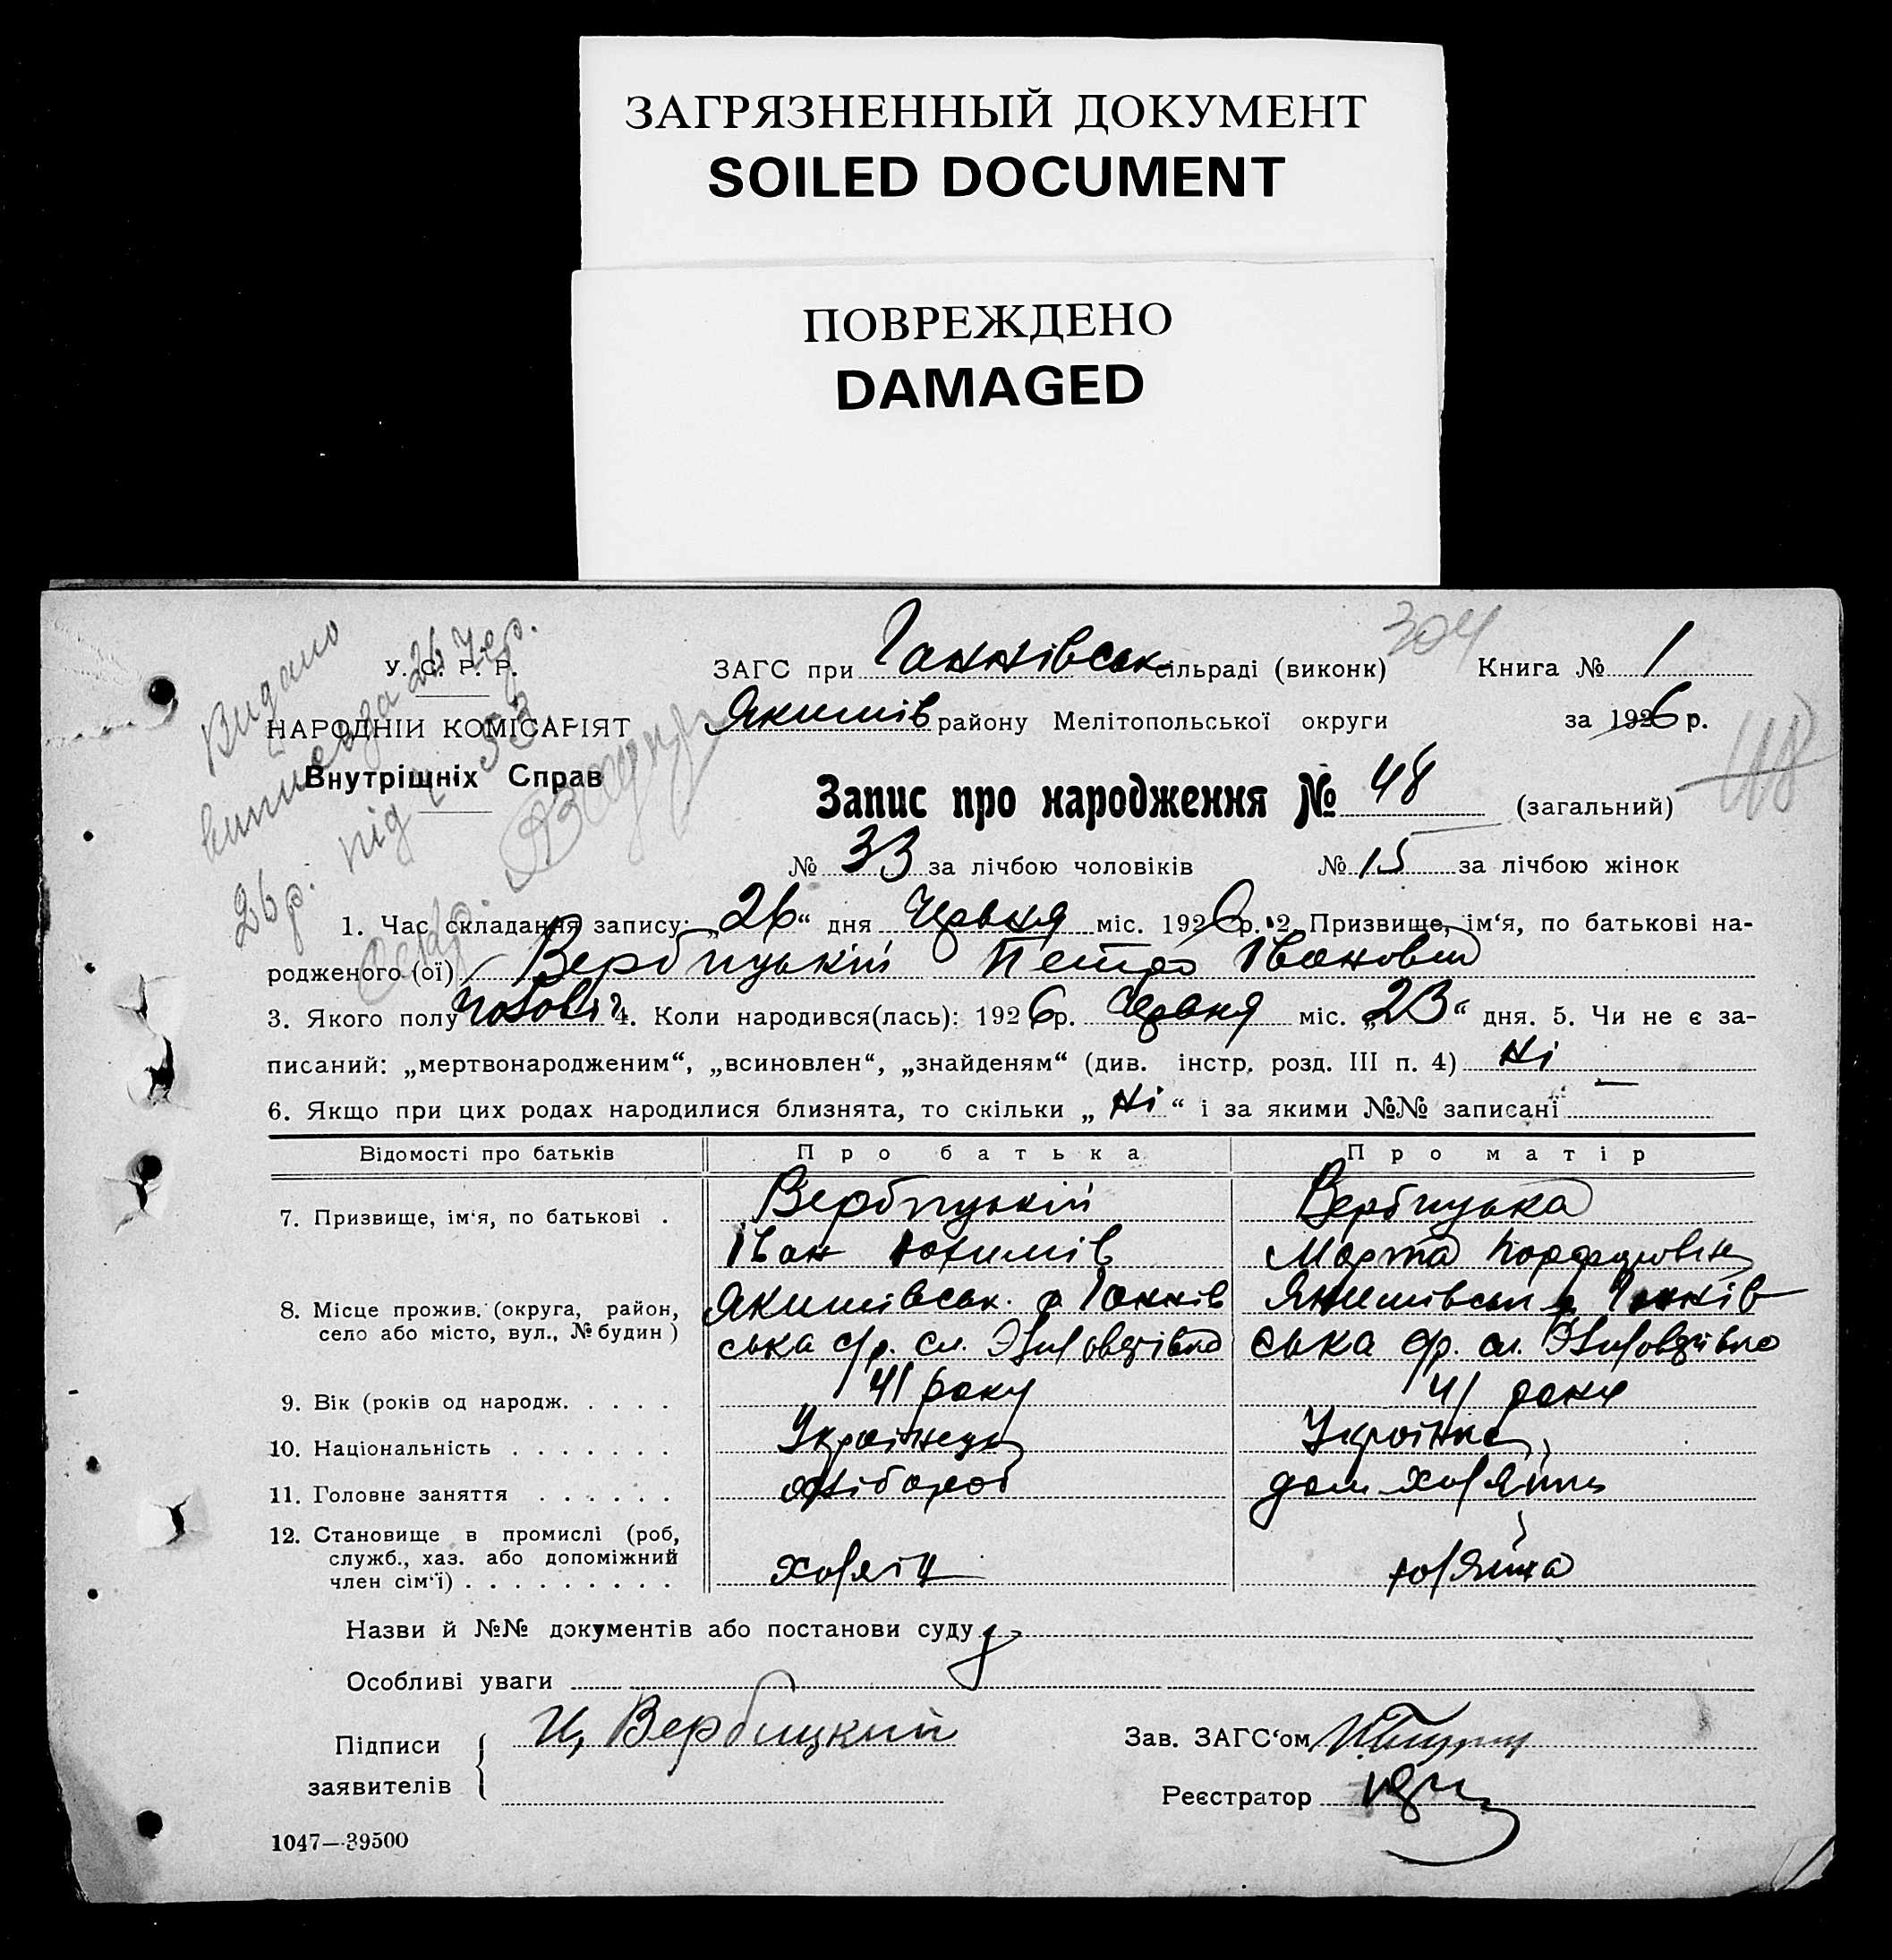 ЗАГРЯЗНЕННЫЙ ДОКУМЕНТ
SOILED DOCUMENT
ПОВРЕЖДЕНО
DAMAGED
304
Видано
виписа за 26 Чер.
26 р. під ч 53
У. С. Р. Р.
НАРОДНІЙ КОМІСАРІЯТ
Внутрішніх Справ
ЗАГС при Ганнівськ сільраді (виконк) Книга № 1
Якимів району Мелітопольської округи за 1926 р.
48
Запис про народження № 48 (загальний)
№ 33 за лічбою чоловіків № 15 за лічбою жінок
1. Час складання запису: „26“ дня Червня міс. 1926 р. 2. Призвище, ім‘я, по батькові на-
родженого (ої) Вербицький Петро Іванович
3. Якого полу чоловіч 4. Коли народився(лась): 1926 р. Червня міс. „23“ дня. 5. Чи не є за-
писаний: „мертвонародженим“, „всиновлен“, „знайденям“ (див. інстр. розд. III п. 4) Ні
6. Якщо при цих родах народилися близнята, то скільки „Ні“ і за якими №№ записані —
Відомості про батьків Про батька Про матір
7. Призвище, ім‘я, по батькові . Вербицький Вербицька
Іван Юхимів Марта
8. Місце прожив. (округа, район, село або місто, вул., № будин) Якимівськ. р Ганнів Якимівськ р Ганнів
ська с/р. сл. ська с/р. сл.
9. Вік (років од народж. . . . . 41 року 41 року
10. Національність . . . . . . . Українець Українка
11. Головне заняття . . . . . . хлібороб дом хозяйка
12. Становище в промислі (роб, служб., хаз. або допоміжний член сім‘ї) . . . . . . . . . хозяїн хозяйка
Назви й №№ документів або постанови суду
Особливі уваги
Підписи заявителів И, Вербицкий
Зав. ЗАГС‘ом
Реєстратор
1047—39500